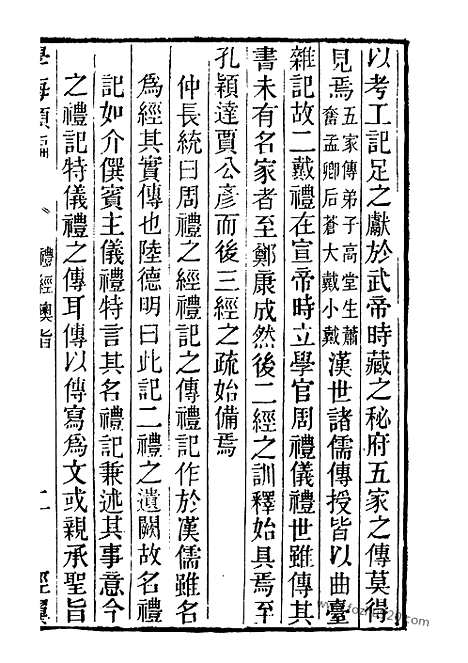 以考工記足之獻於武帝時藏之秘府五家之傳莫得
見焉五家傳弟子高堂生蕭奮孟卿后蒼大戴小戴漢世諸儒傳授皆以曲臺
雜記故二戴禮在宣帝時立學官周禮儀禮世雖傳其
書未有名家者至鄭康成然後二經之訓釋始具焉至
孔穎達賈公彥而後三經之疏始備焉
仲長統曰周禮之經禮記之傳禮記作於漢儒雖名
為經其實傳也陸德明曰此記二禮之遺闕故名禮
記如介僎賓主儀禮特言其名禮記兼述其事意今
之禮記特儀禮之傳耳傳以傳寫為文或親承聖旨
學海類編
禮經奧旨
二
經翼